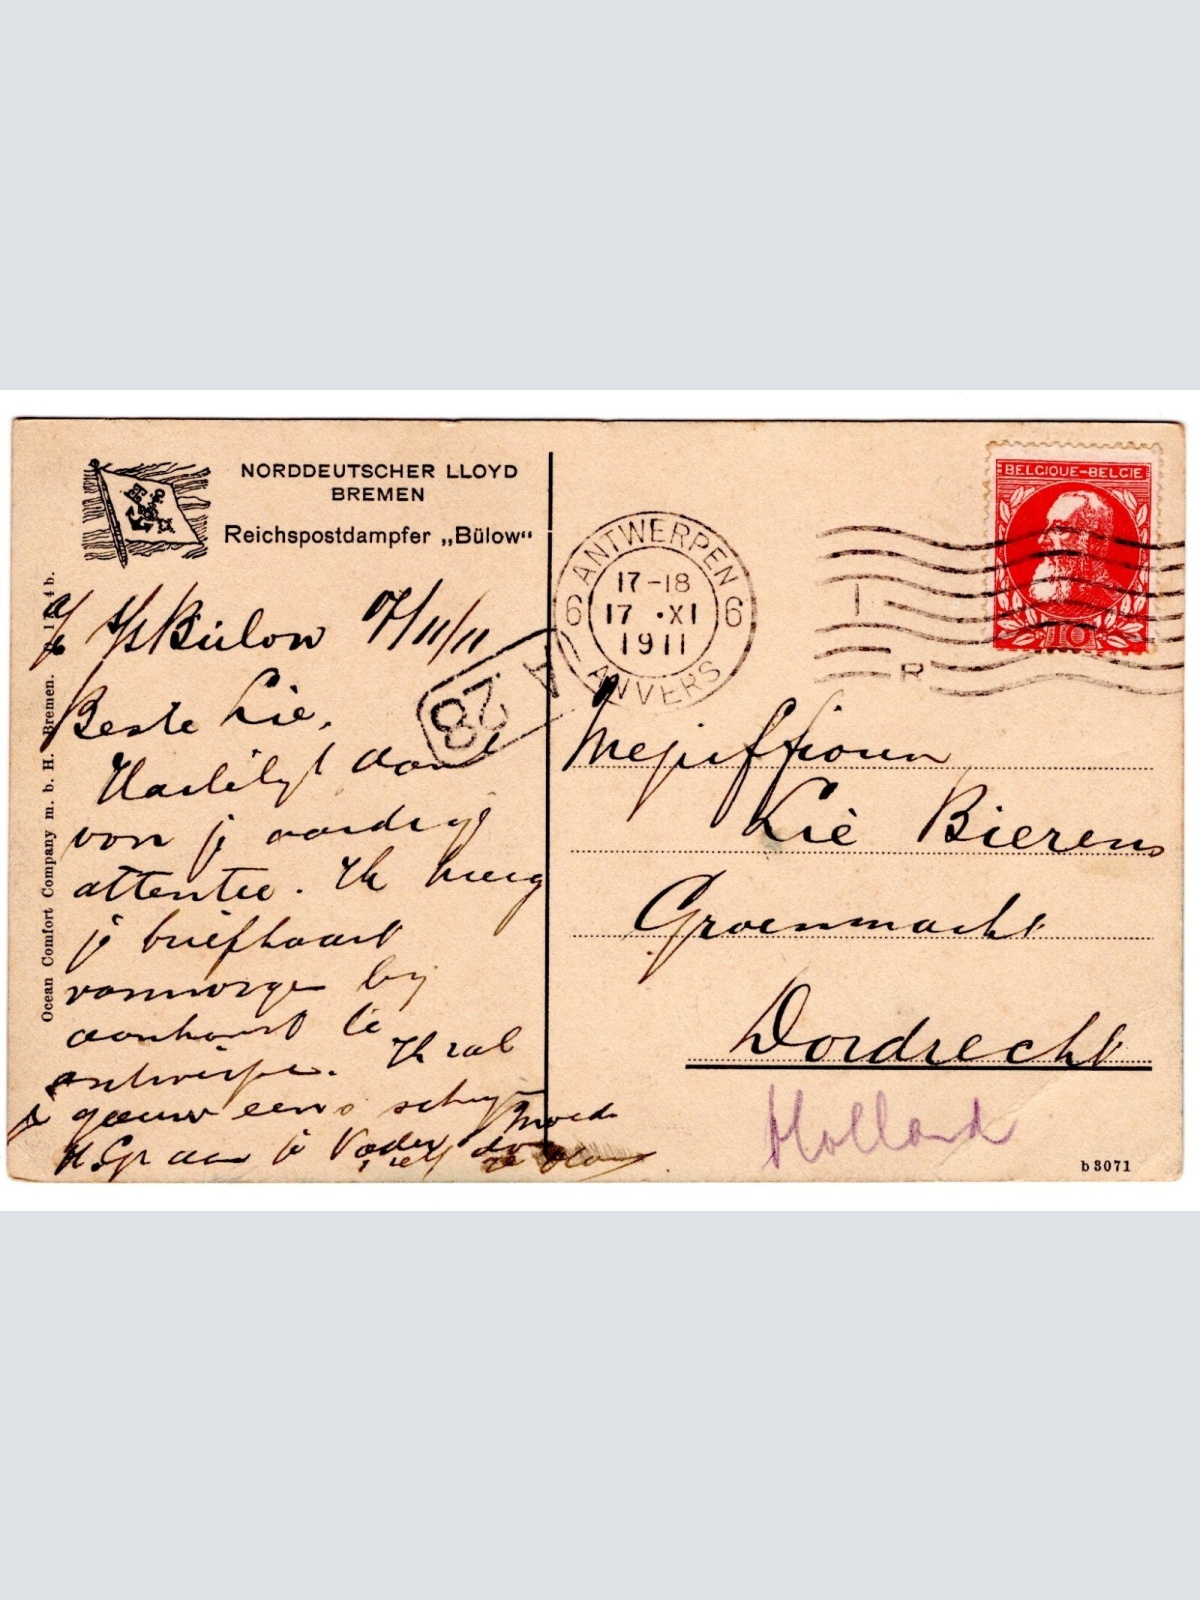 NORDDEUTSCHER LLOYD
BREMEN
Reichspostdampfer „Bülow"
a/b s/s Bülow 17/11/11
Beste Lie,
Hartelijk dank
voor je aardige
attentie. Ik kreeg
je briefkaart
vanmorgen bij
aankomst te
Antwerpen. Ik zal
je gauw eens schrijven
H. Gr aan je Vader Moeder
Ocean Comfort Company m. b. H. Bremen.
28
ANTWERPEN
6 6
17-18
17 ·XI
1911
ANVERS
BELGIQUE-BELGIE
10
Mejuffrouw
Lië Bierens
Groenmarkt
Dordrecht
Holland
b 3071